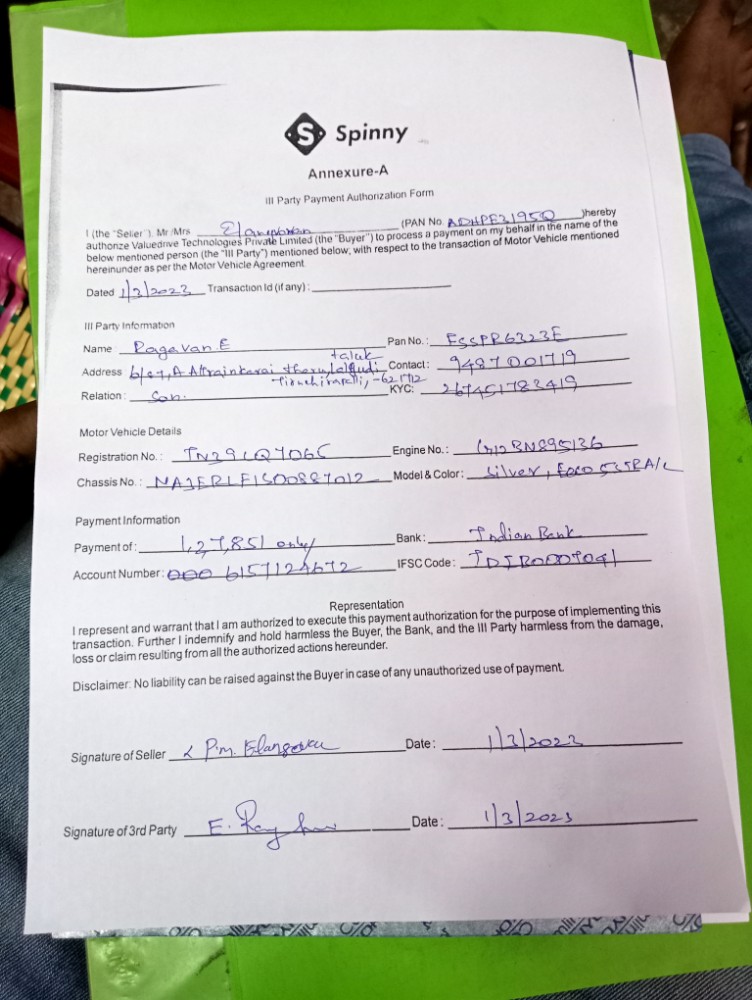 Spinny
Annexure-A
III Party Payment Authorization Form
I (the "Seller"). Mr/Mrs. Elangovan (PAN No. ADHPE3195Q )hereby
authorize Valuedrive Technologies Private Limited (the "Buyer") to process a payment on my behalf in the name of the
below mentioned person (the "III Party") mentioned below, with respect to the transaction of Motor Vehicle mentioned
hereinunder as per the Motor Vehicle Agreement.
Dated 1/3/2023 Transaction Id (if any) :
III Party Information
Name : Ragavan.E Pan No. : FSSPR6323E
Address taluk Contact: 9487001719
-621712
Relation: Son. KYC: 267451782419
Motor Vehicle Details
Registration No. : TN39CQ7065 Engine No. :
Chassis No. : Model & Color: Silver,
Payment Information
Payment of : 1,27,851 only Bank: Indian Bank
Account Number: 6157124672 IFSC Code:
Representation
I represent and warrant that I am authorized to execute this payment authorization for the purpose of implementing this
transaction. Further I indemnify and hold harmless the Buyer, the Bank, and the III Party harmless from the damage,
loss or claim resulting from all the authorized actions hereunder.
Disclaimer: No liability can be raised against the Buyer in case of any unauthorized use of payment.
Signature of Seller P.M. Elangovan Date: 1/3/2023
Signature of 3rd Party E. Date: 1/3/2023